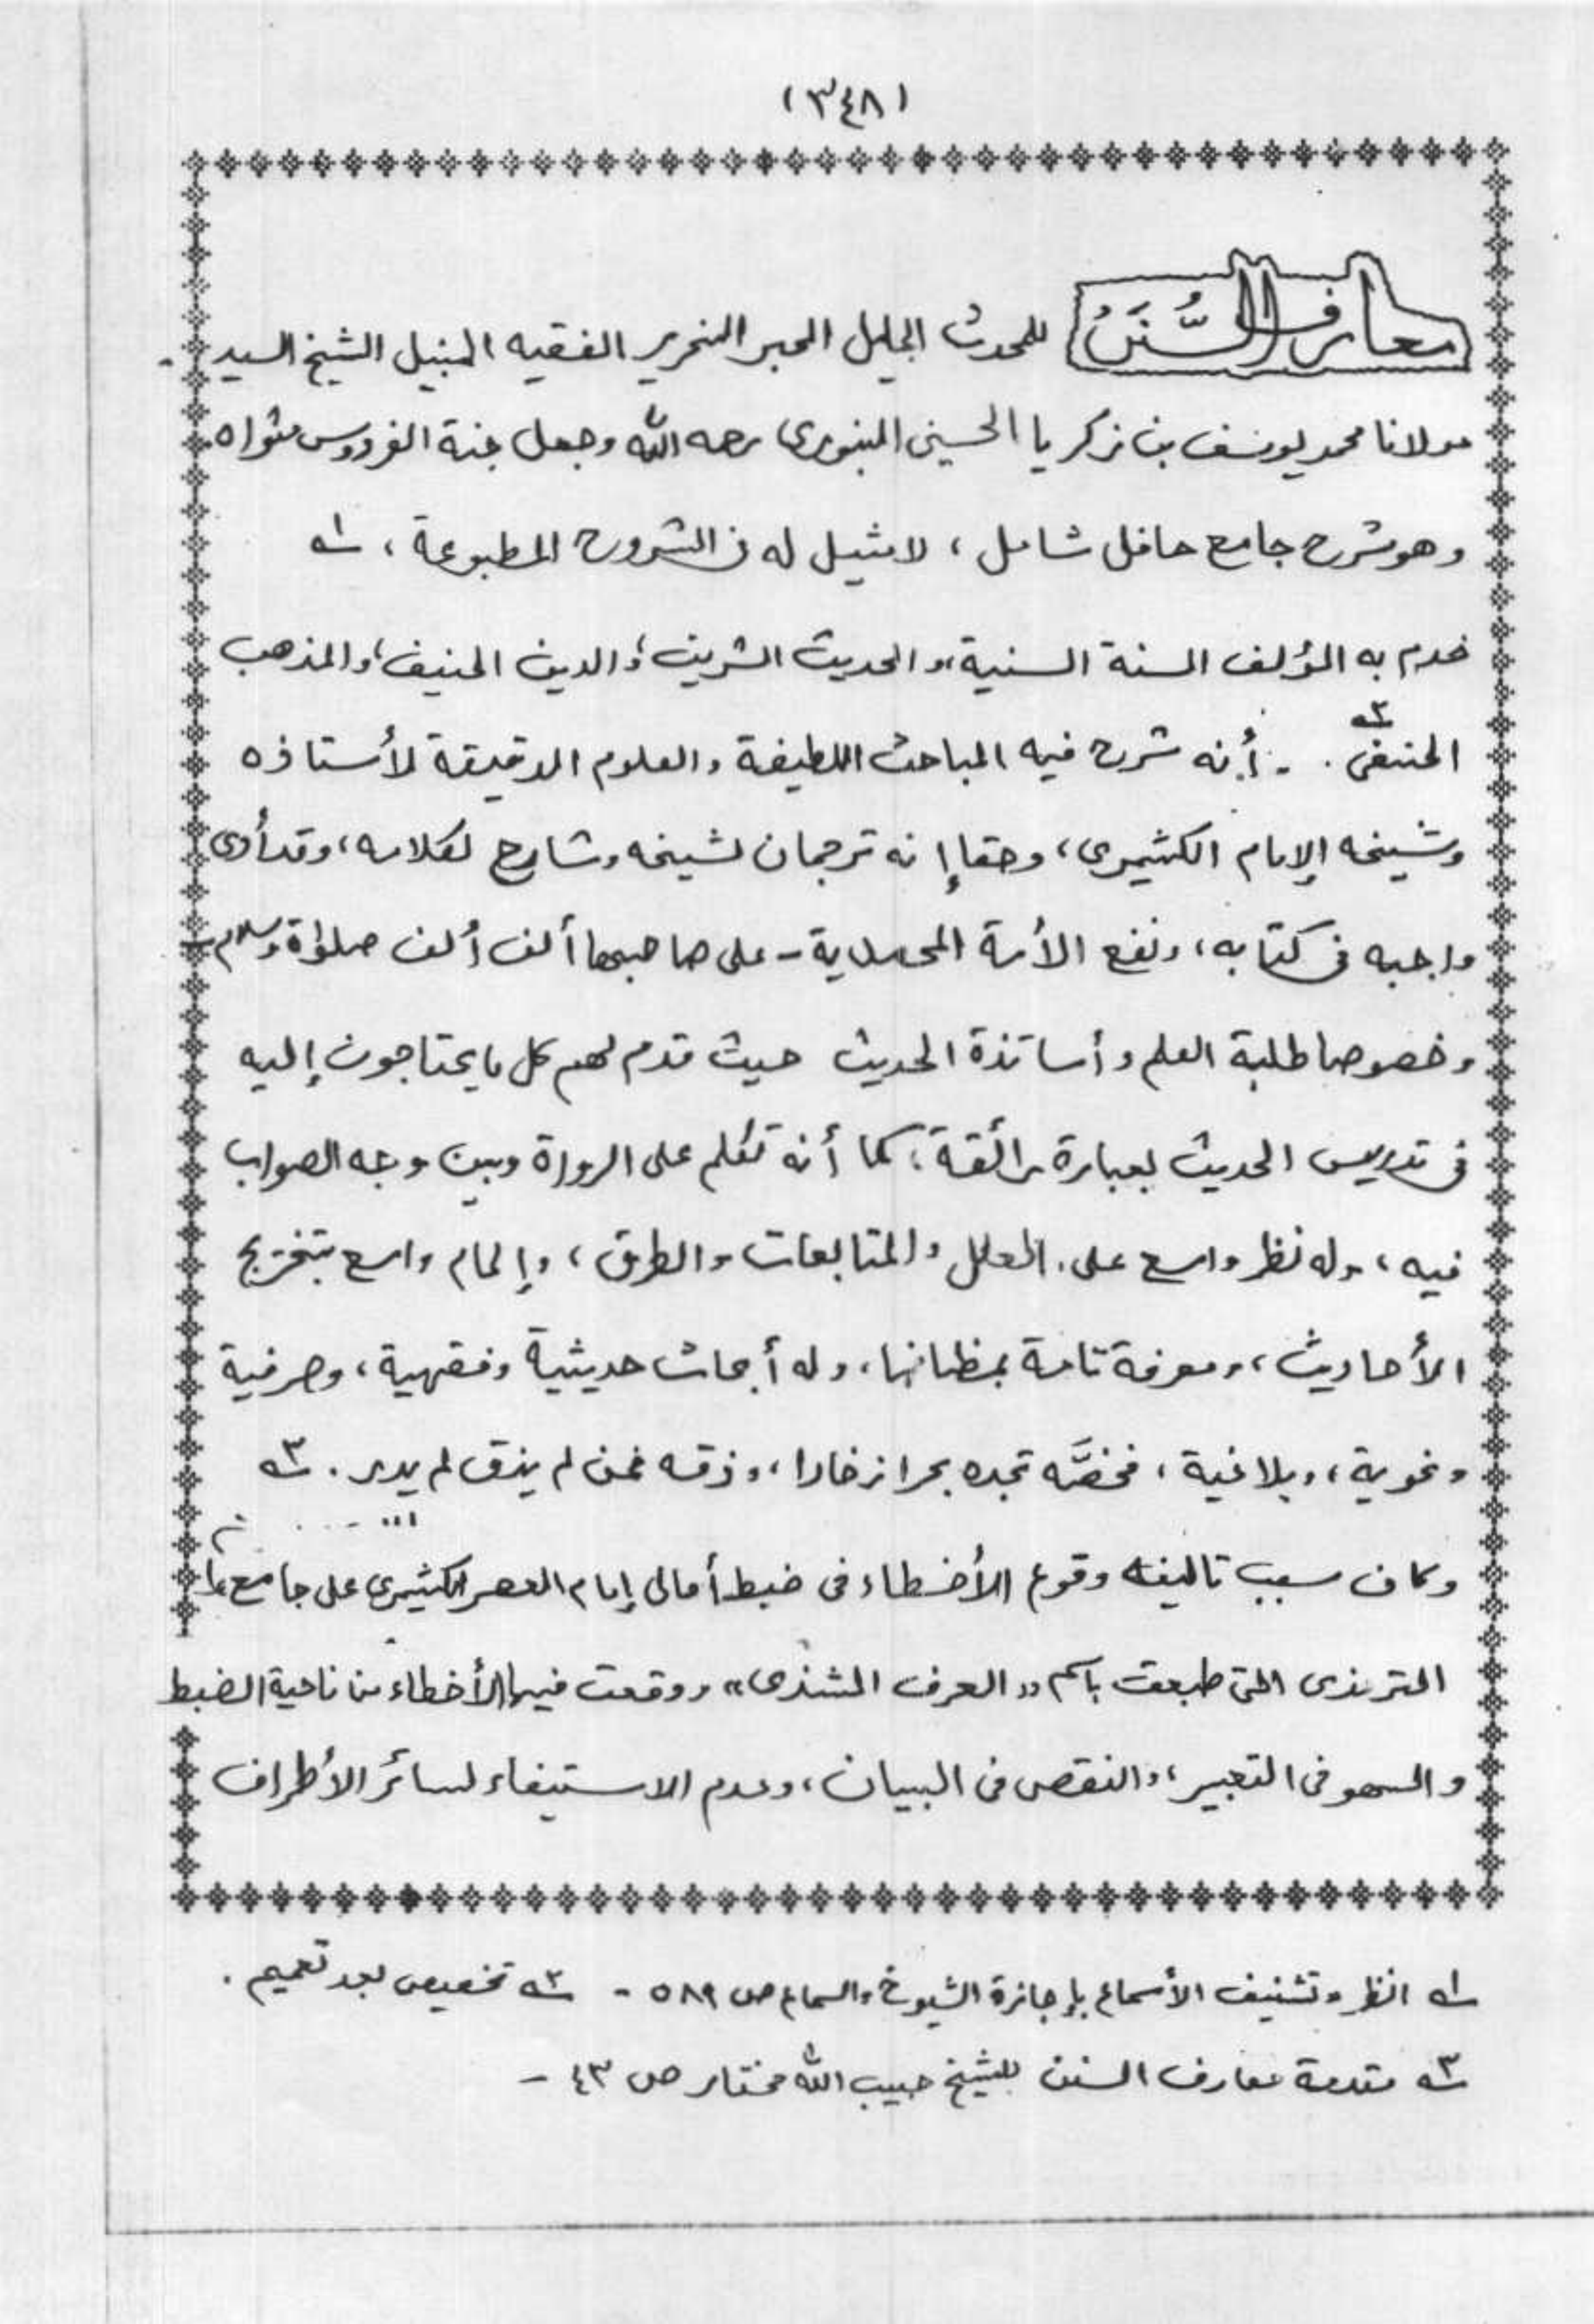 (٣٤٨)
معارف السُّنَنُ للمحدث الجليل الحبر النحرير الفقيه النبيل الشيخ السيد
مولانا محمد يوسف بن زكريا الحسيني البنوري رحمه الله وجعل جنة الفردوس مثواه
وهو شرح جامع حافل شامل، لا مثيل له في الشروح المطبوعة، ١ـه
خدم به المؤلف السنة السنية، والحديث الشريف، والدين الحنيف، والمذهب
الحنفى ٢ـه . - أنه شرح فيه المباحث اللطيفة والعلوم الدقيقة لأستاذه
وشيخه الإمام الكشميرى، وحقا إنه ترجمان لشيخه وشارح لكلامه، وقد أدى
واجبه فى كتابه، ونفع الأمة المحمدية - على صاحبها ألف ألف صلوٰة وسلام -
وخصوصا طلبة العلم وأساتذة الحديث حيث قدم لهم كل ما يحتاجون إليه
فى تدريس الحديث بعبارة رائقة، كما أنه تكلم على الرواة وبين وجه الصواب
فيه، وله نظر واسع على العلل والمتابعات والطرق، وإلمام واسع بتخريج
الأحاديث، ومعرفة تامة بمظانها، وله أبحاث حديثية وفقهية، وصرفية
ونحوية، وبلاغية، فخضَّه تجده بحرا زخارا، وذقه فمن لم يذق لم يدر. ٣ـه
وكان سبب تاليفه وقوع الأخطاء فى ضبط أمالى إمام العصر الكشميرى على جامع
الترمذى التى طبعت باسم "العرف الشذى" ووقعت فيها الأخطاء من ناحية الضبط
والسهو فى التعبير، والنقص فى البيان، وعدم الاستيفاء لسائر الأطراف
١ـه انظر وتشنيف الأسماع بإجازة الشيوخ والسماع ص ٥٨٩ - ٢ـه تخصيص بعد تعميم .
٣ـه مقدمة معارف السنن للشيخ حبيب الله مختار ص ٤٣ -